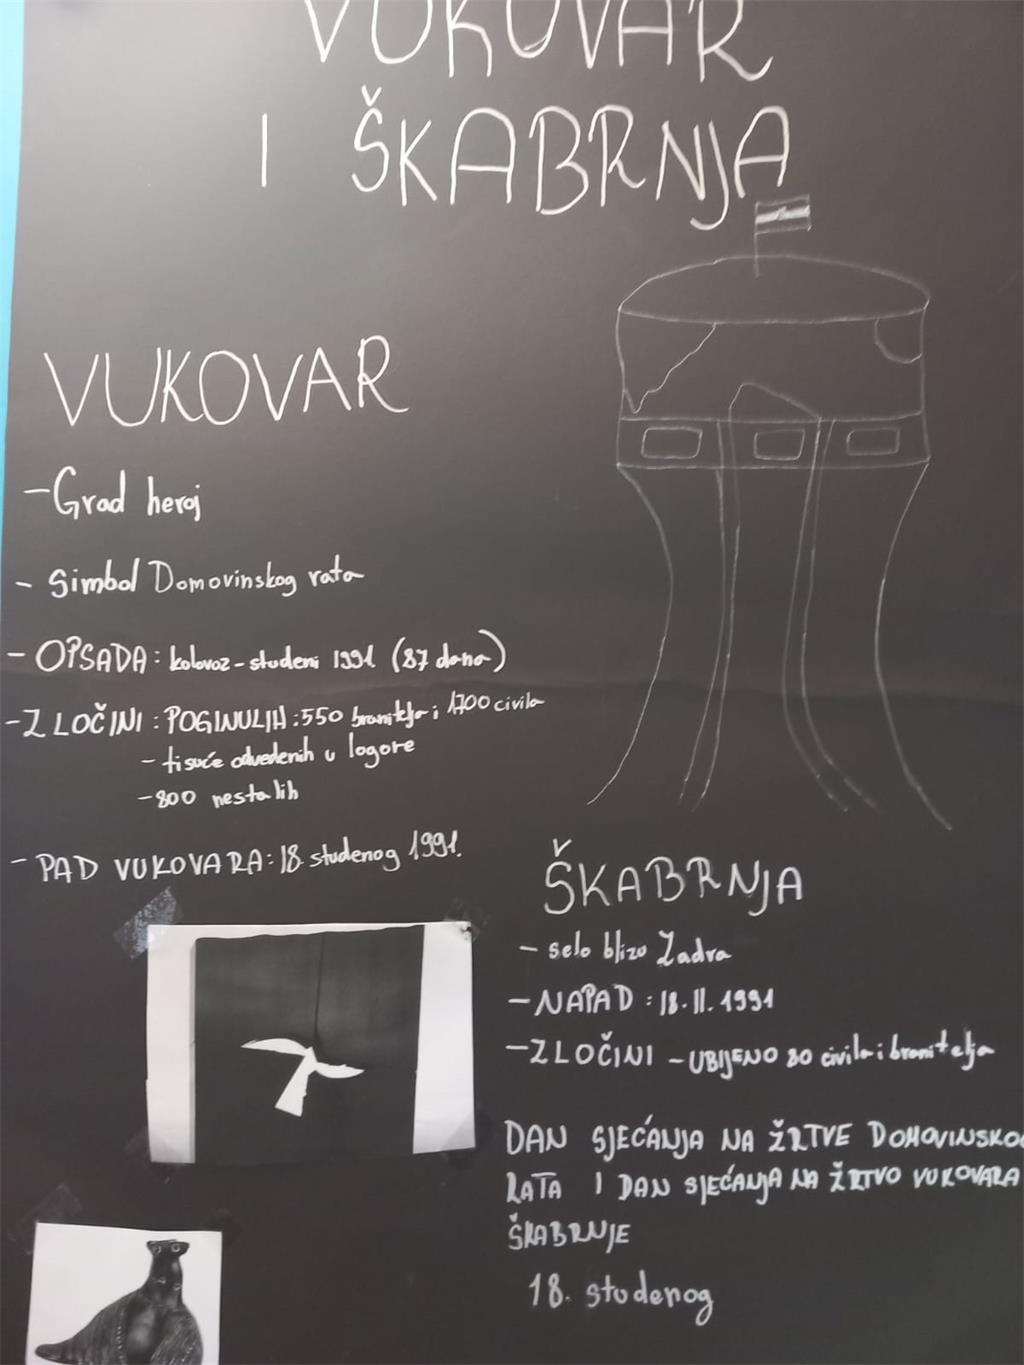 VUKOVAR
I ŠKABRNJA
VUKOVAR
- Grad heroj
- Simbol Domovinskog rata
- OPSADA: kolovoz - studeni 1991 (87 dana)
- ZLOČINI: POGINULIH: 550 branitelja i 1700 civila
- tisuće odvedenih u logore
- 800 nestalih
- PAD VUKOVARA: 18. studenog 1991.
ŠKABRNJA
- selo blizu Zadra
- NAPAD: 18.11.1991
- ZLOČINI - UBIJENO 80 civila i branitelja
DAN SJEĆANJA NA ŽRTVE DOMOVINSKO
RATA I DAN SJEĆANJA NA ŽRTVO VUKOVARA
ŠKABRNJE
18. studenog